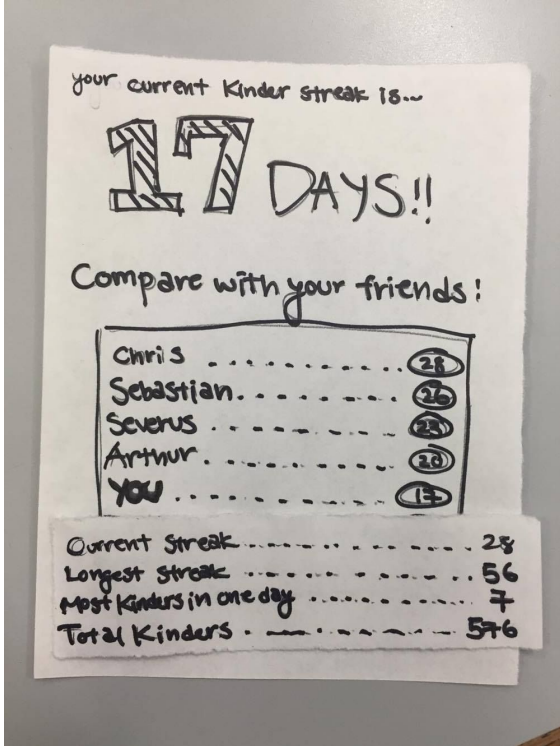 your current Kinder streak is~
17 DAYS!!
Compare with your friends!
Chris .......... 28
Sebastian.......... 26
Severus .......... 23
Arthur.......... 20
YOU .......... 17
Current Streak .......... 28
Longest Streak .......... 56
Most Kinders in one day .......... 7
Total Kinders .......... 576